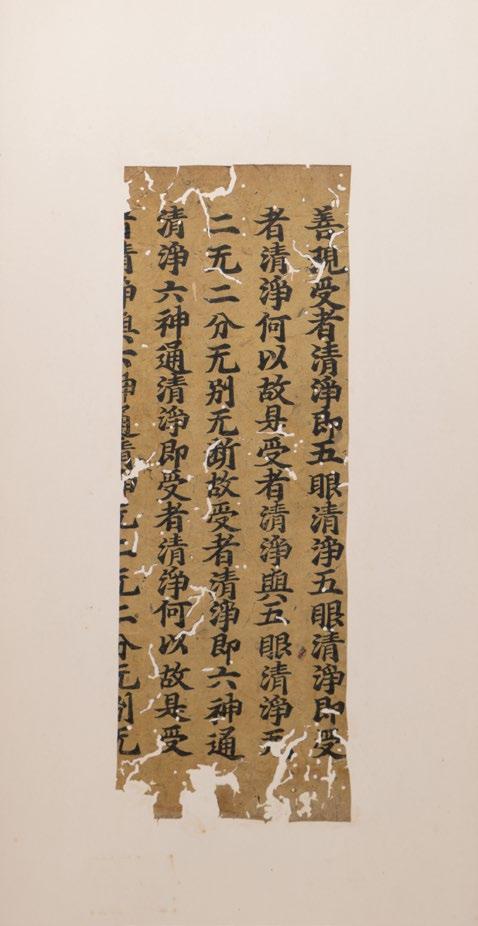 善現受者清淨即五眼清淨五眼清淨即受
者清淨何以故是受者清淨與五眼清淨无
二无二分无別无断故受者清淨即六神通
清淨六神通清淨即受者清淨何以故是受
者清淨與六神通清淨无二无二分无別无